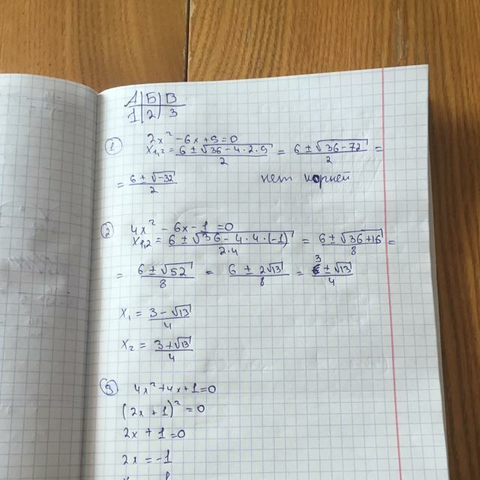 А | Б | В
1 | 2 | 3
① 2x² - 6x + 9 = 0
x₁,₂ = (6 ± √(36 - 4·2·9))/2 = (6 ± √(36 - 72))/2 =
= (6 ± √-32)/2 нет корней
② 4x² - 6x - 1 = 0
x₁,₂ = (6 ± √(36 - 4·4·(-1)))/(2·4) = (6 ± √(36 + 16))/8 =
= (6 ± √52)/8 = (6 ± 2√13)/8 = (3 ± √13)/4
x₁ = (3 - √13)/4
x₂ = (3 + √13)/4
③ 4x² + 4x + 1 = 0
(2x + 1)² = 0
2x + 1 = 0
2x = -1